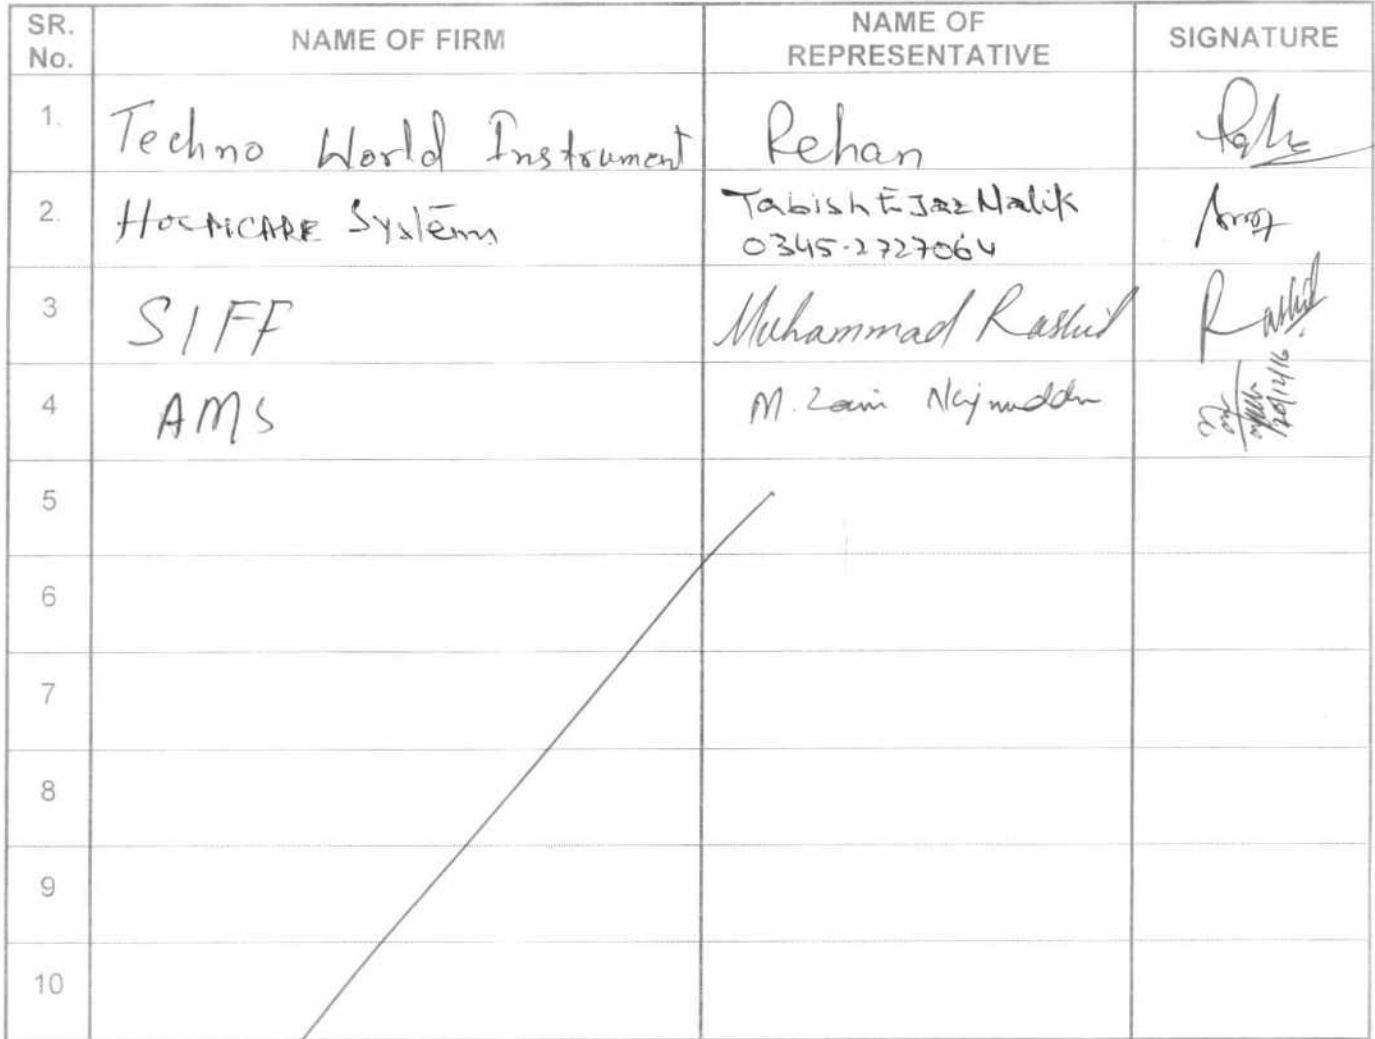 SR. No.
NAME OF FIRM
NAME OF REPRESENTATIVE
SIGNATURE
1. Techno World Instrument Rehan
2. Systems Tabish Ejaz Malik
0345-2727064
3 SIFF Muhammad Rashid Rashid
4 AMS M. Zain Najmuddin
20/12/16
5
6
7
8
9
10